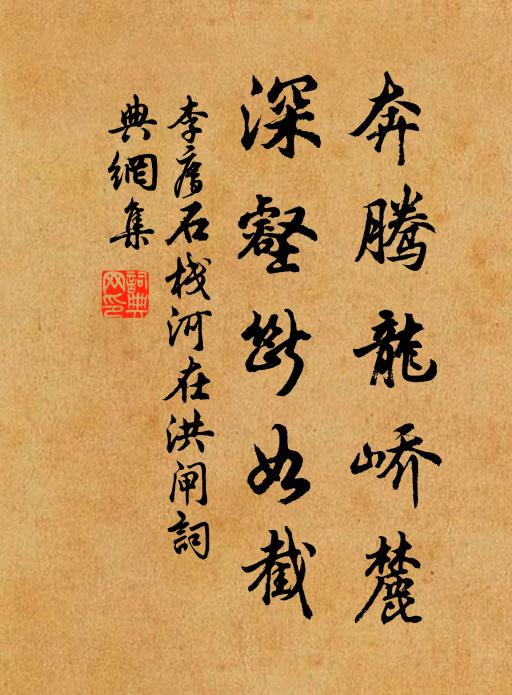 奔騰龍峤麓
深壑斷如截
李廌石栈河在洪閘詞
典網集
詞典
网印